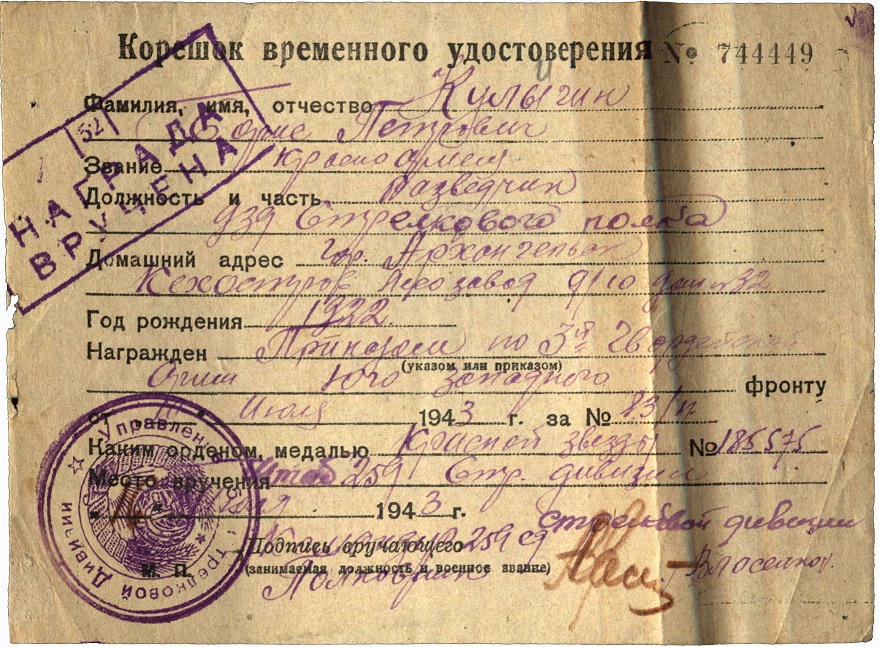 Корешок временного удостоверения № 744449
Фамилия, имя, отчество Кулыгин
Борис Петрович
Звание Красноармеец
Должность и часть Разведчик
939 Стрелкового полка
Домашний адрес Гор. Архангельск
Кехостров Лесозавод № 10 дом № 32
Год рождения 1922
Награжден Приказом по 3й Гвардейской
(указом или приказом)
Армии Юго западного фронту
от 10 " Июля 1943 г. за № 83/н
Каким орденом, медалью Красной звезды № 185575
Место вручения Штаб 259 Стр. дивизии
1943 г.
стрелковой дивизии
Подпись вручающего 259 сд
(занимаемая должность и военное звание)
Полковник
М. П.
НАГРАДА
ВРУЧЕНА
52
Управление Стрелковой Дивизии